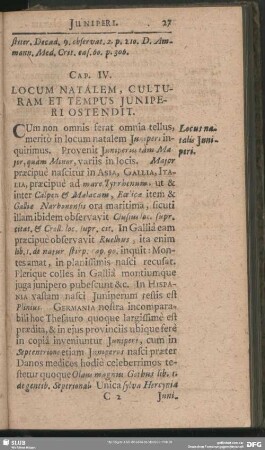 JUNIPERI. 27
stter. Decad. 9. observat. 2. p. 210. D. Am-
mann. Med. Crit. cas. 60. p. 306.
CAP. IV.
LOCUM NATALEM, CULTU-
RAM ET TEMPUS JUNIPE-
RI OSTENDIT.
CUm non omnis ferat omnia tellus,
meritò in locum natalem Juniperi in-
quirimus. Provenit Juniperus tàm Ma-
jor, quàm Minor, variis in locis. Major
præcipuè nascitur in ASIA, GALLIA, ITA-
LIA, præcipuè ad mare Tyrrhenum: ut &
inter Calpen & Malacam, Bœtica item &
Galliæ Narbonensis ora maritima, sicuti
illam ibidem observavit Clusius loc. supr.
citat. & Croll. loc. supr. cit. In Gallia eam
præcipuè observavit Ruellius, ita enim
lib. 1. de natur. stirp. cap. 90. inquit: Mon-
tes amat, in planissimis nasci recusat.
Plerique colles in Galliâ montiumque
juga junipero pubescunt &c. In HISPA-
NIA vastam nasci Juniperum testis est
Plinius. GERMANIA nostra incompara-
bili hoc Thesauro quoque largissimè est
prædita, & in ejus provinciis ubique ferè
in copiâ inveniuntur Juniperi, cum in
Septentrione etiam Juniperos nasci præter
Danos medicos hodiè celeberrimos te-
stetur quoque Olaus magnus Gothus lib. 12.
de gentib. Septentrional. Unica sylva Hercynia
C 2 Juni-
Locus na-
talis Juni-
peri.
SLUB
DFG